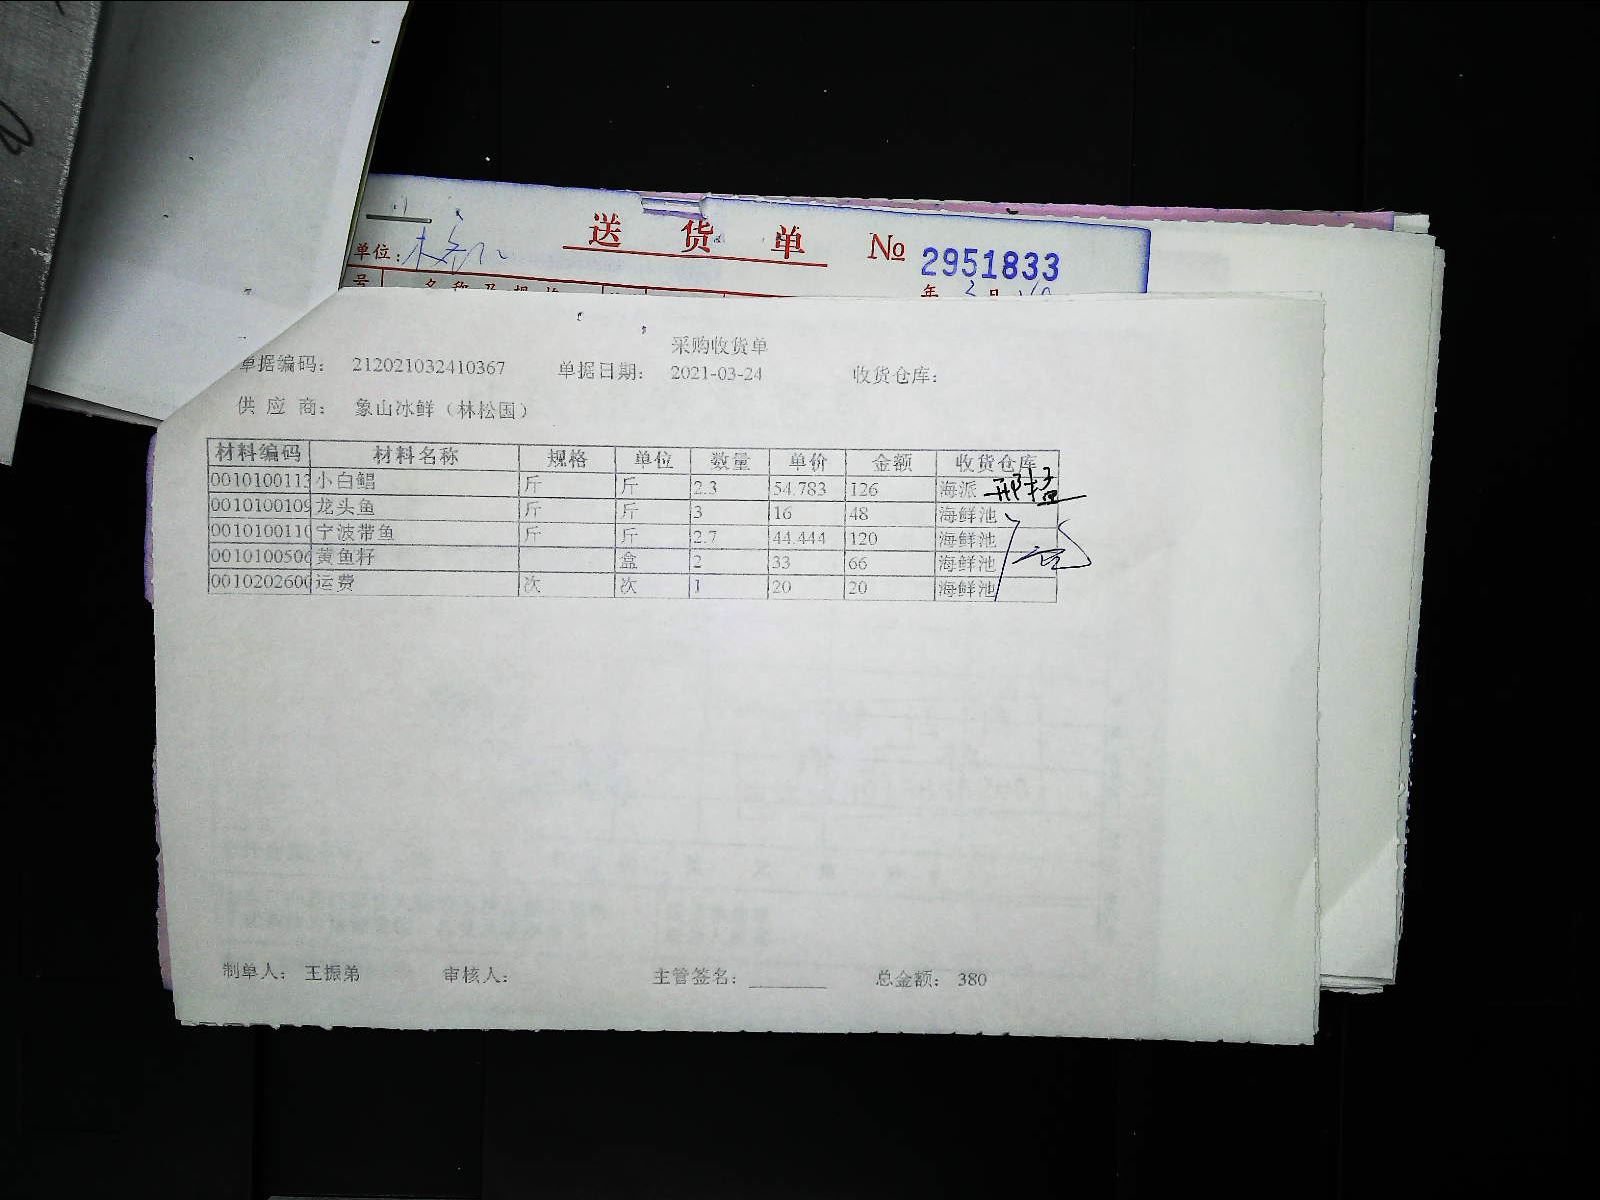 送 货 单 № 2951833
单位:
号 名称及规格 年 3 月
采购收货单
单据编码: 212021032410367 单据日期: 2021-03-24 收货仓库:
供 应 商: 象山冰鲜（林松国）
材料编码 材料名称 规格 单位 数量 单价 金额 收货仓库
0010100113 小白鲳 斤 斤 2.3 54.783 126 海派
0010100109 龙头鱼 斤 斤 3 16 48 海鲜池
001010011 宁波带鱼 斤 斤 2.7 44.444 120 海鲜池
001010050 黄鱼籽 盒 2 33 66 海鲜池
001020260 运费 次 次 1 20 20 海鲜池
制单人: 王振弟 审核人: 主管签名: 总金额: 380